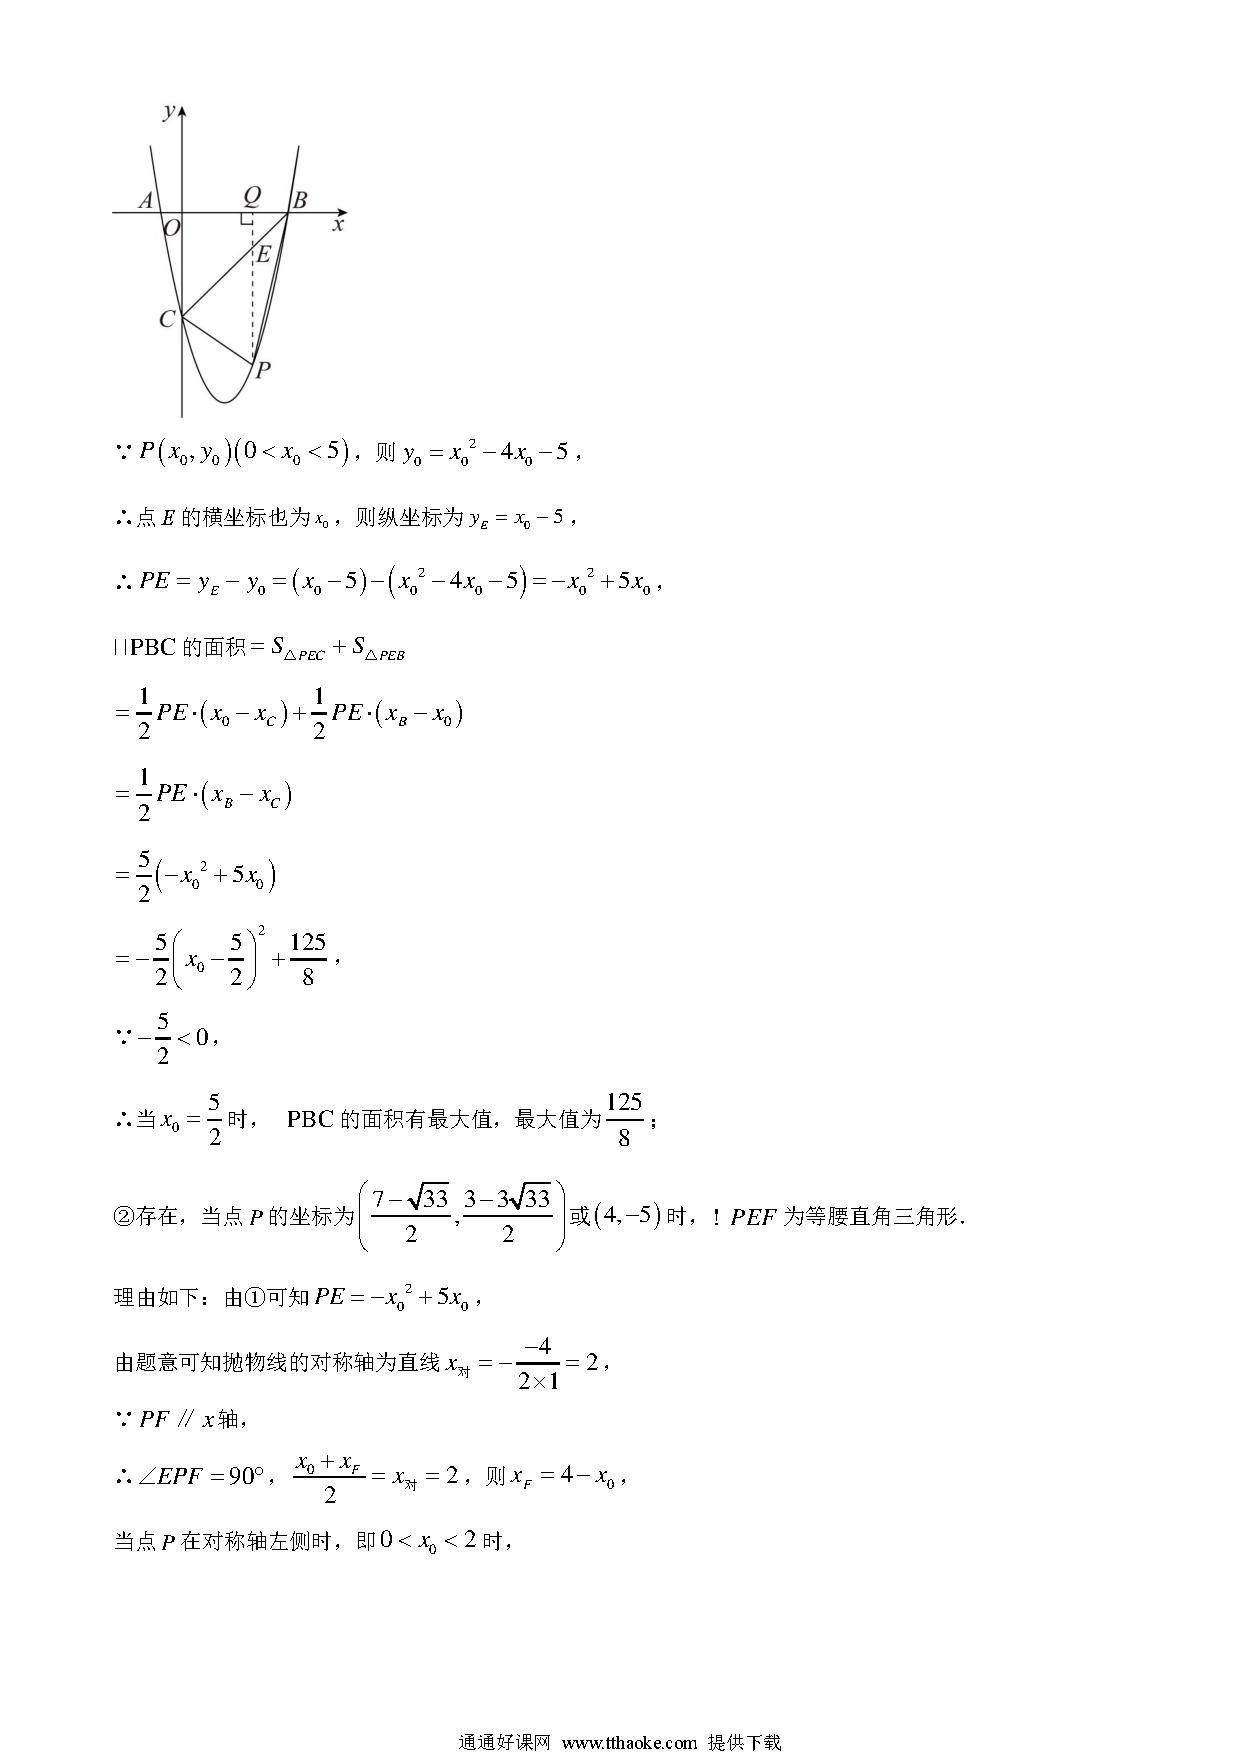 y
A
Q
B
O
x
E
C
P
∵P(x₀,y₀)(0<x₀<5)，则 y₀=x₀²−4x₀−5，
∴点E的横坐标也为x₀，则纵坐标为y_E=x₀−5，
∴PE=y_E−y₀=(x₀−5)−(x₀²−4x₀−5)=−x₀²+5x₀，
□PBC的面积=S_△PEC+S_△PEB
=1/2PE·(x₀−x_C)+1/2PE·(x_B−x₀)
=1/2PE·(x_B−x_C)
=5/2(−x₀²+5x₀)
=−5/2(x₀−5/2)²+125/8，
∵−5/2<0，
∴当x₀=5/2时， PBC的面积有最大值，最大值为125/8；
②存在，当点P的坐标为((7−√33)/2,(3−3√33)/2)或(4,−5)时，! PEF为等腰直角三角形．
理由如下：由①可知PE=−x₀²+5x₀，
由题意可知抛物线的对称轴为直线x_对=−(−4)/(2×1)=2，
∵PF∥x轴，
∴∠EPF=90°，(x₀+x_F)/2=x_对=2，则x_F=4−x₀，
当点P在对称轴左侧时，即0<x₀<2时，
通通好课网 www.tthaoke.com 提供下载